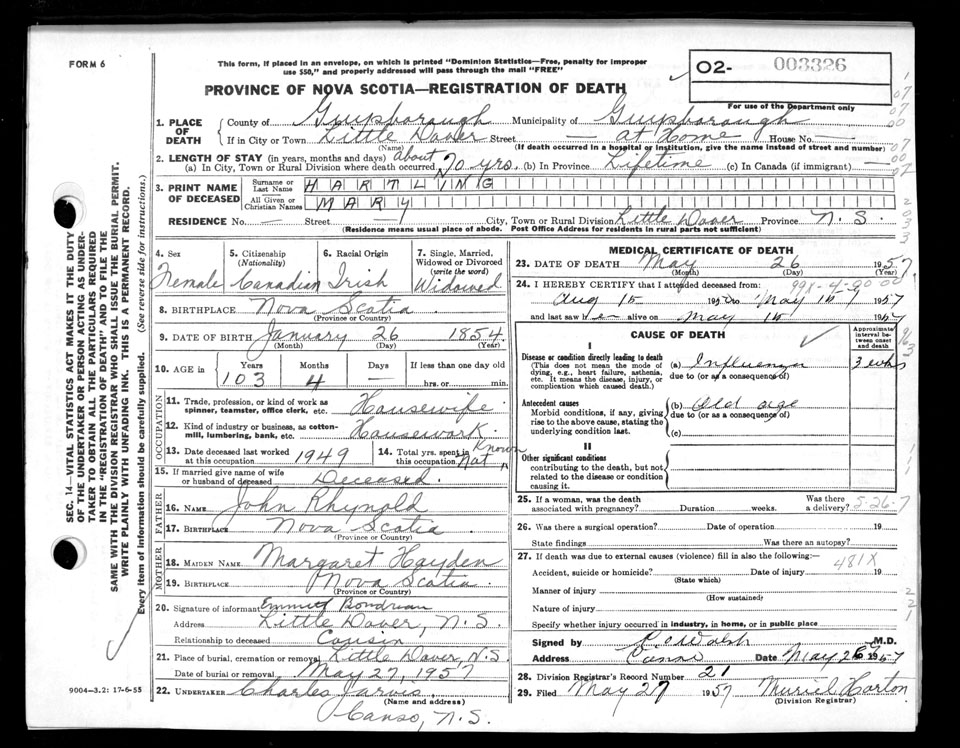 FORM 6
This form, if placed in an envelope, on which is printed "Dominion Statistics—Free, penalty for improper
use $50," and properly addressed will pass through the mail "FREE"
O2- 003326
For use of the Department only
PROVINCE OF NOVA SCOTIA—REGISTRATION OF DEATH
1. PLACE OF DEATH County of Guysborough Municipality of Guysborough
If in City or Town Little Dover Street — At Home House No. —
(Name) (If death occurred in a hospital or institution, give the name instead of street and number)
2. LENGTH OF STAY (in years, months and days)
(a) In City, Town or Rural Division where death occurred about 70 yrs. (b) In Province Lifetime (c) In Canada (if immigrant) —
3. PRINT NAME OF DECEASED Surname or Last Name HARTLING
All Given or Christian Names MARY
RESIDENCE No. — Street — City, Town or Rural Division Little Dover Province N.S.
(Residence means usual place of abode. Post Office Address for residents in rural parts not sufficient)
4. Sex Female
5. Citizenship (Nationality) Canadian
6. Racial Origin Irish
7. Single, Married, Widowed or Divorced (write the word) Widowed
8. BIRTHPLACE Nova Scotia
(Province or Country)
9. DATE OF BIRTH January 26 1854
(Month) (Day) (Year)
10. AGE in Years 103 Months 4 Days — If less than one day old hrs. or min.
OCCUPATION
11. Trade, profession, or kind of work as spinner, teamster, office clerk, etc. Housewife
12. Kind of industry or business, as cotton-mill, lumbering, bank, etc. Housework
13. Date deceased last worked at this occupation 1949
14. Total yrs. spent in this occupation Not Known
15. If married give name of wife or husband of deceased Deceased
FATHER
16. NAME John Rhynold
17. BIRTHPLACE Nova Scotia
(Province or Country)
MOTHER
18. MAIDEN NAME Margaret Hayden
19. BIRTHPLACE Nova Scotia
(Province or Country)
20. Signature of informant Bondreau
Address Little Dover, N.S.
Relationship to deceased Cousin
21. Place of burial, cremation or removal Little Dover, N.S.
Date of burial or removal May 27, 1957
22. UNDERTAKER Charles Jarvis
(Name and address)
Canso, N.S.
9004-3.2: 17-6-55
MEDICAL CERTIFICATE OF DEATH
23. DATE OF DEATH May 26 1957
(Month) (Day) (Year)
24. I HEREBY CERTIFY that I attended deceased from:
Aug 15 19 to May 15 1957
and last saw h er alive on May 15 1957
CAUSE OF DEATH
Approximate interval between onset and death
I
Disease or condition directly leading to death
(This does not mean the mode of dying, e.g., heart failure, asthenia, etc. It means the disease, injury, or complication which caused death.)
(a) Influenza 3 wks
due to (or as a consequence of)
Antecedent causes
Morbid conditions, if any, giving rise to the above cause, stating the underlying condition last.
(b) Old age
due to (or as a consequence of)
(c)
II
Other significant conditions
contributing to the death, but not related to the disease or condition causing it.
25. If a woman, was the death associated with pregnancy? Duration weeks. Was there a delivery?
5-26-7
26. Was there a surgical operation? Date of operation 19
State findings Was there an autopsy?
27. If death was due to external causes (violence) fill in also the following:—
481X
Accident, suicide or homicide? Date of injury 19
(State which)
Manner of injury
(How sustained)
Nature of injury
Specify whether injury occurred in industry, in home, or in public place
Signed by Walsh M.D.
Address Canso Date May 1957
28. Division Registrar's Record Number 21
29. Filed May 27 1957 Muriel Horton
(Division Registrar)
SEC. 14—VITAL STATISTICS ACT MAKES IT THE DUTY
OF THE UNDERTAKER OR PERSON ACTING AS UNDER-
TAKER TO OBTAIN ALL THE PARTICULARS REQUIRED
IN THE "REGISTRATION OF DEATH" AND TO FILE THE
SAME WITH THE DIVISION REGISTRAR WHO SHALL ISSUE THE BURIAL PERMIT.
WRITE PLAINLY WITH UNFADING INK. THIS IS A PERMANENT RECORD.
Every item of information should be carefully supplied. (See reverse side for instructions.)